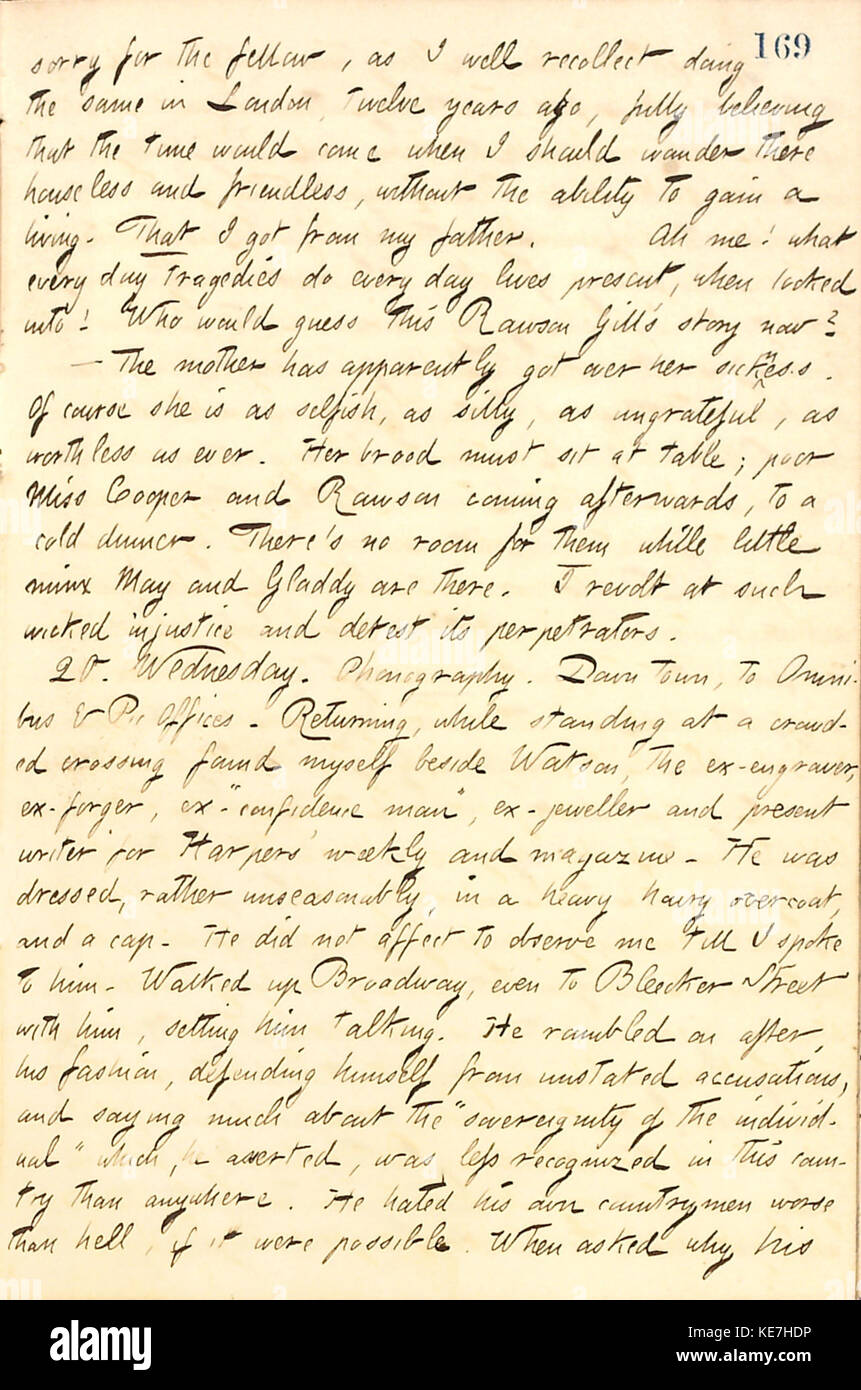 169
sorry for the fellow, as I well recollect doing
the same in London, twelve years ago, fully believing
that the time would come when I should wander there
houseless and friendless, without the ability to gain a
living. That I got from my father. Ah me! what
every day tragedies do every day lives present, when looked
into! Who would guess this Rawson Gill's story now?
— The mother has apparently got over her sickness.
Of course she is as selfish, as silly, as ungrateful, as
worthless as ever. Her brood must sit at table; poor
Miss Cooper and Rawson coming afterwards, to a
cold dinner. There's no room for them while little
minx May and Gladdy are there. I revolt at such
wicked injustice and detest its perpetrators.
20. Wednesday. Phonography. Down town, to Omni-
bus & Pic Offices. Returning, while standing at a crowd-
ed crossing found myself beside Watson, the ex-engraver,
ex-forger, ex-"confidence man", ex-jeweller and present
writer for Harpers' weekly and magazine. He was
dressed, rather unseasonably, in a heavy hairy overcoat,
and a cap. He did not affect to observe me till I spoke
to him. Walked up Broadway, even to Bleecker Street
with him, setting him talking. He rambled on after
his fashion, defending himself from unstated accusations,
and saying much about the "sovereignity of the individ-
ual" which, he asserted, was less recognized in this coun-
try than anywhere. He hated his own countrymen worse
than hell, if it were possible. When asked why his
alamy
Image ID: KE7HDP
www.alamy.com